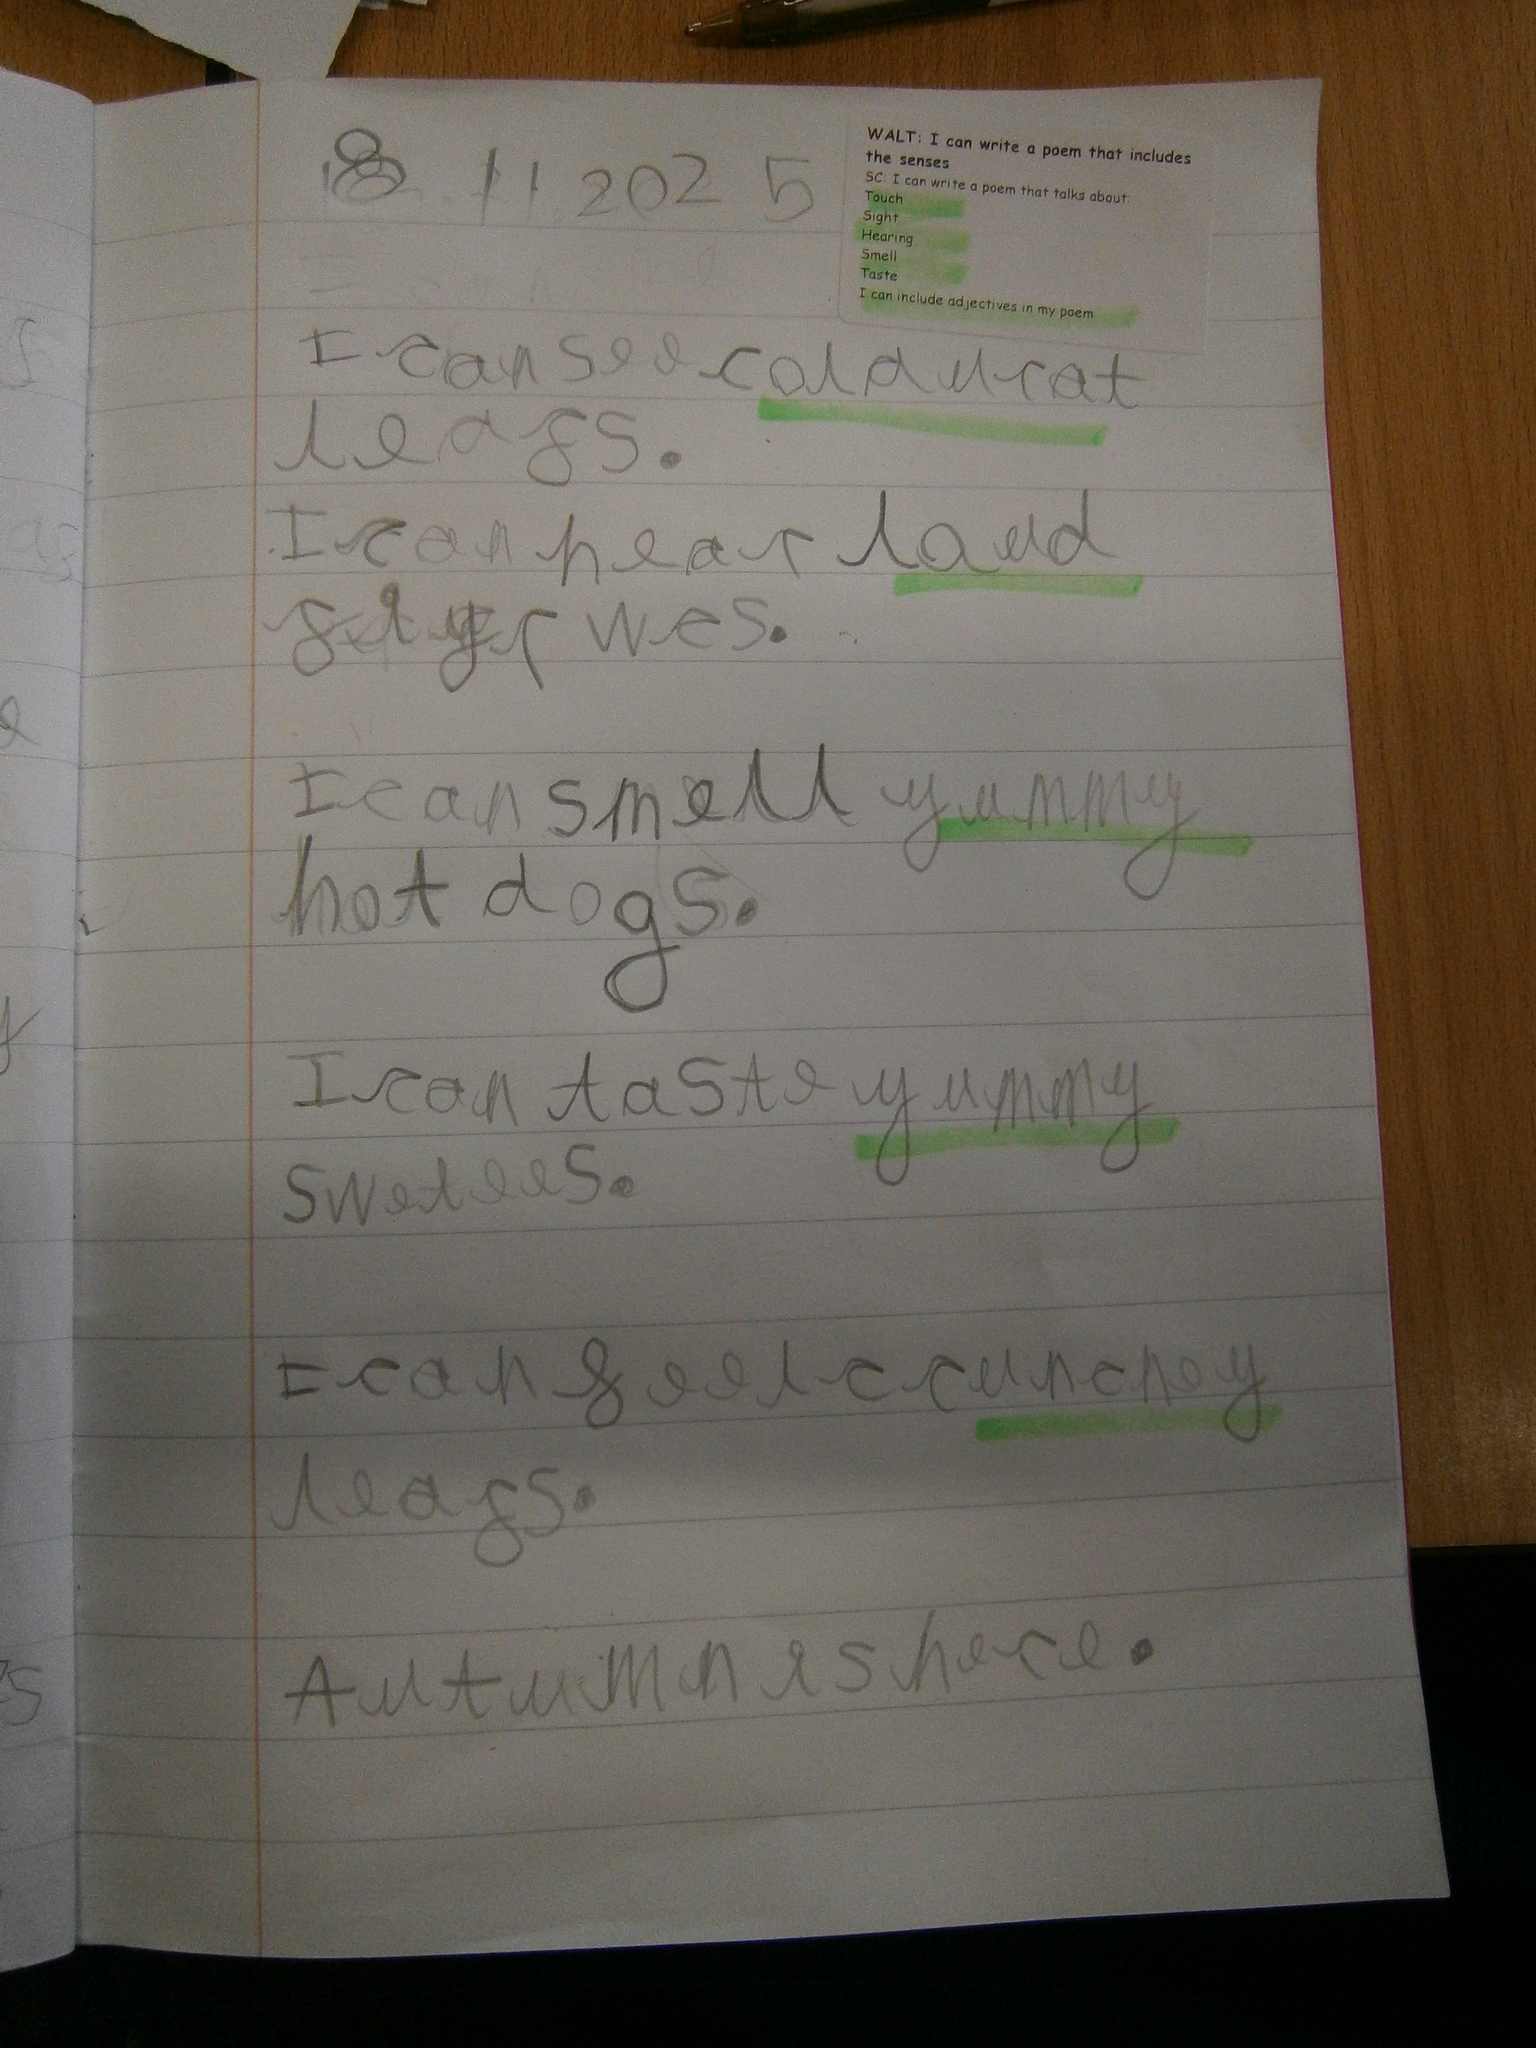 8.11.2025
WALT: I can write a poem that includes
the senses
SC: I can write a poem that talks about:
Touch
Sight
Hearing
Smell
Taste
I can include adjectives in my poem
I can see coldurat
leafs.
I can hear laud
I can smell yummy
hot dogs.
I can taste yummy
swetees.
I can feel ccunchey
leafs.
Autumn is here.